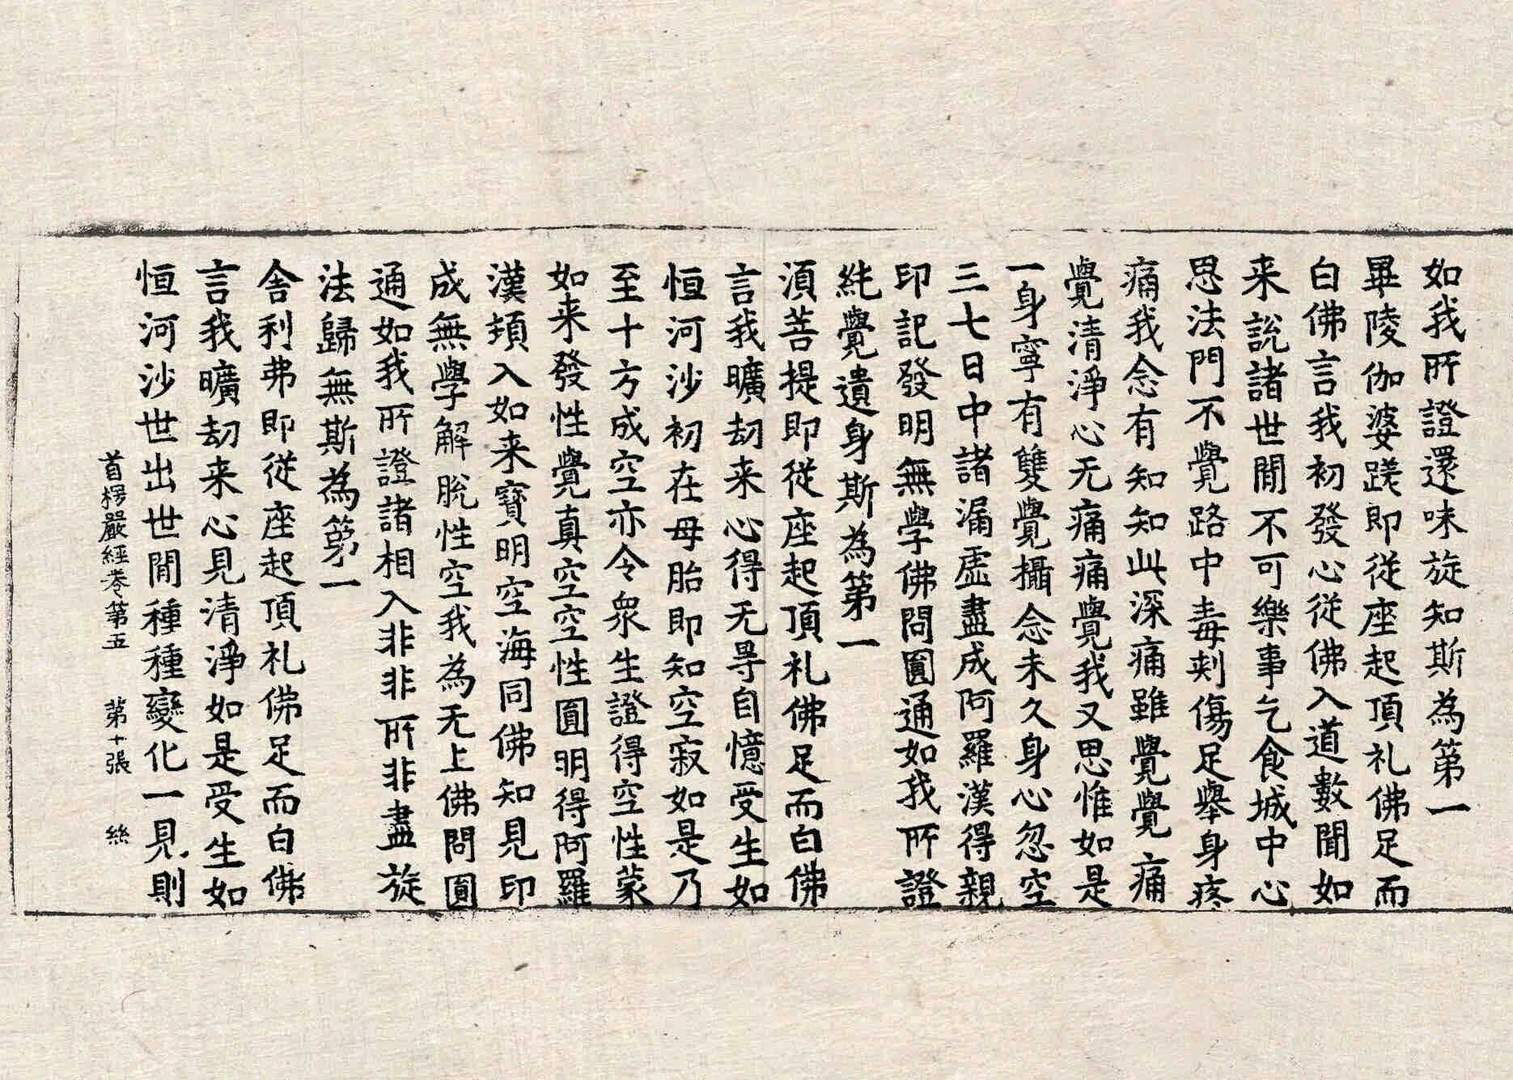 如我所證還味旋知斯為第一
畢陵伽婆蹉即從座起頂礼佛足而
白佛言我初發心從佛入道數聞如
来說諸世間不可樂事乞食城中心
思法門不覺路中毒刺傷足舉身疼
痛我念有知知此深痛雖覺覺痛
覺清淨心无痛痛覺我又思惟如是
一身寧有雙覺攝念未久身心忽空
三七日中諸漏虛盡成阿羅漢得親
印記發明無學佛問圓通如我所證
純覺遺身斯為第一
湏菩提即從座起頂礼佛足而白佛
言我曠劫来心得无㝵自憶受生如
恒河沙初在母胎即知空寂如是乃
至十方成空亦令衆生證得空性蒙
如来發性覺真空空性圓明得阿羅
漢頓入如来寶明空海同佛知見印
成無學解脫性空我為无上佛問圓
通如我所證諸相入非非所非盡旋
法歸無斯為第一
舍利弗即從座起頂礼佛足而白佛
言我曠劫来心見清淨如是受生如
恒河沙世出世間種種變化一見則
首楞嚴經卷第五　第十張　絲